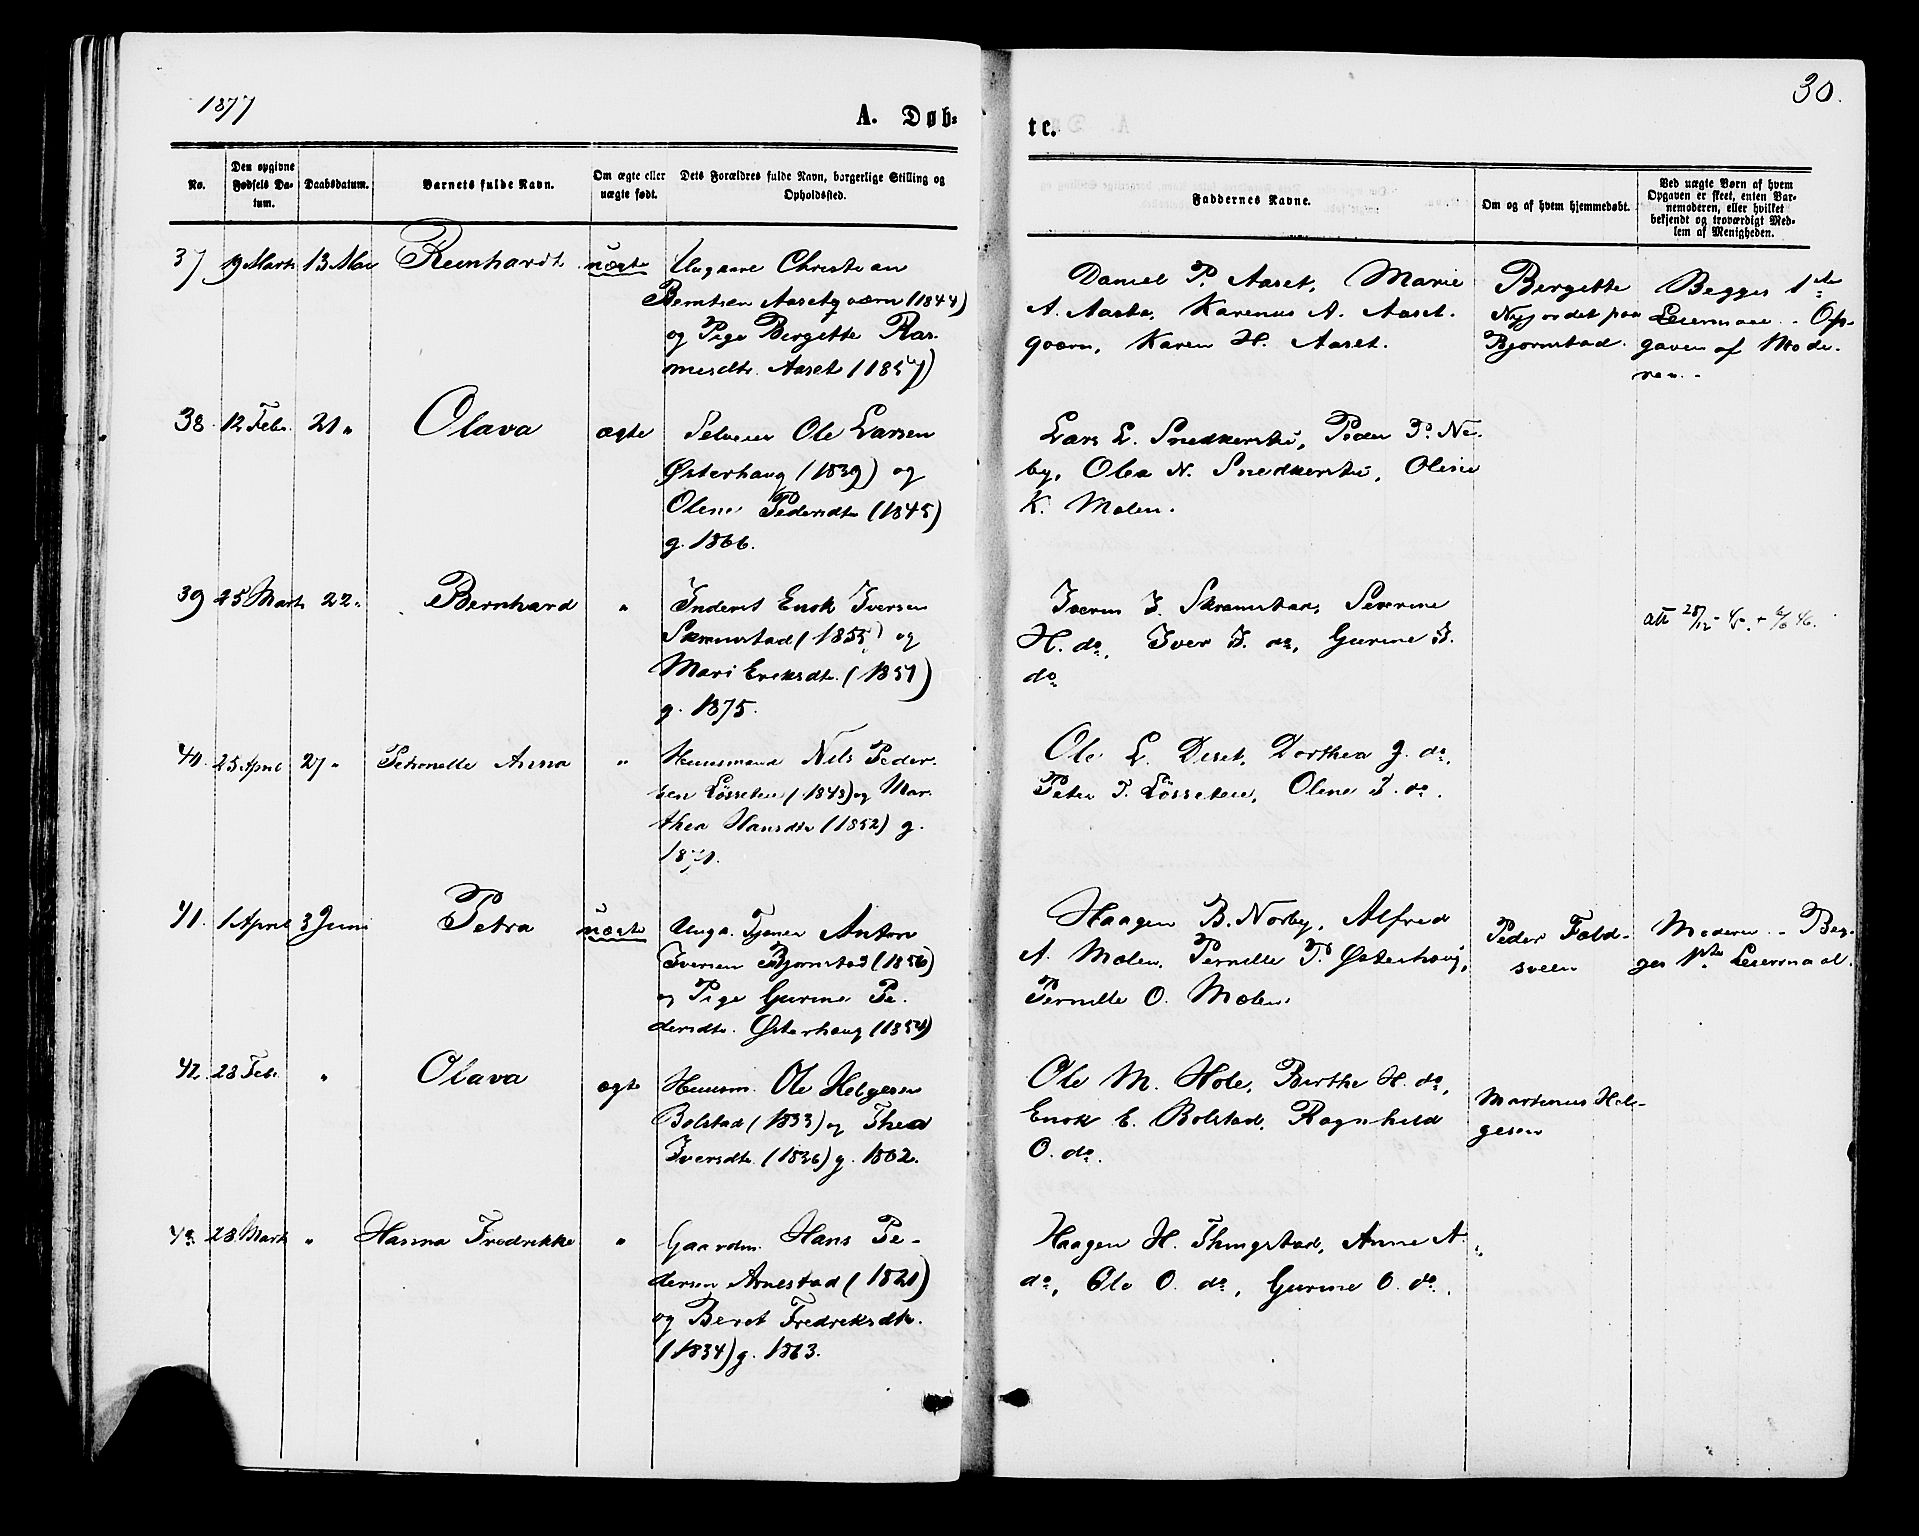 1877
30.
A. Døb=
te.
No.
Den opgivne
Fødsels Da-
tum.
Daabsdatum.
Barnets fulde Navn.
Om ægte eller
uægte født.
Dets Forældres fulde Navn, borgerlige Stilling og
Opholdssted.
Faddernes Navne.
Om og af hvem hjemmedøbt.
Ved uægte Børn af hvem
Opgaven er skeet, enten Bar-
nemoderen, eller hvilket
bekjendt og troværdigt Med-
lem af Menigheden.
37 9 Marts 13 Mai Reinhardt uægte
Ungkarl Christian
Berntsen Aasetqværn (1844)
og Pige Bergitte Ras-
musdtr. Aaset (1857)
Daniel P. Aaset, Marie
A. Aasta, Karenus A. Aaset-
qværn, Karen H. Aaset.
Bergitte
Nyjordet paa
Bjørnstad.
Begges 1ste
Leiermaal. Op-
gaven af Mode-
ren.-
38 12 Febr. 21 " Olava ægte
Selveier Ole Larsen
Østerhaug (1839) og
Oline Pedersdtr (1845)
g. 1866.
Lars L. Snedkerstu, Peder P. Ne-
by, Olea N. Snedkerstu, Oline
K. Molen.
39 25 Marts 22 " Bernhard "
Inderst Enok Iversen
Skramstad (1855) og
Mari Eriksdtr. (1851)
g. 1875.
Iveren I. Skramstad, Severine
H. do, Iver I. do, Gurine I.
do
att 28/12-45. + 6/6 46.
40. 25 April 27 " Petronelle Anna "
Huusmand Nils Peder-
sen Løsseteie (1843) og Mar-
thea Hansdtr (1852) g.
1871.
Ole L. Deset, Dorthea J. do,
Peter P. Løsseteie, Oline I. do.
41. 1 April 3 Juni Petra uægte
Ungk. Tjener Anton
Iversen Bjørnstad (1856)
og Pige Gurine Pe-
dersdtr. Østerhaug (1854)
Haagen B. Norby, Alfred
A. Molen, Pernille P. Østerhaug,
Pernille O. Molen.
Peder Fold-
sveen
Moderen. - Beg-
ges 1ste Leiermaal.
42. 28 Febr. " Olava ægte
Huusm. Ole Helgesen
Bolstad (1833) og Thea
Iversdtr. (1836) g. 1862.
Ole M. Hole, Berthe H. do,
Enok E. Bolstad, Ragnhild
O. do.
Martinus Hel-
gesen
43 28 Marts " Hanna Fredrikke "
Gaardm. Hans Pe-
dersen Arnestad (1821)
og Beret Fredriksdtr.
(1834) g. 1863.
Haagen H. Thingstad, Anne A.
do, Ole O. do, Gurine O. do.